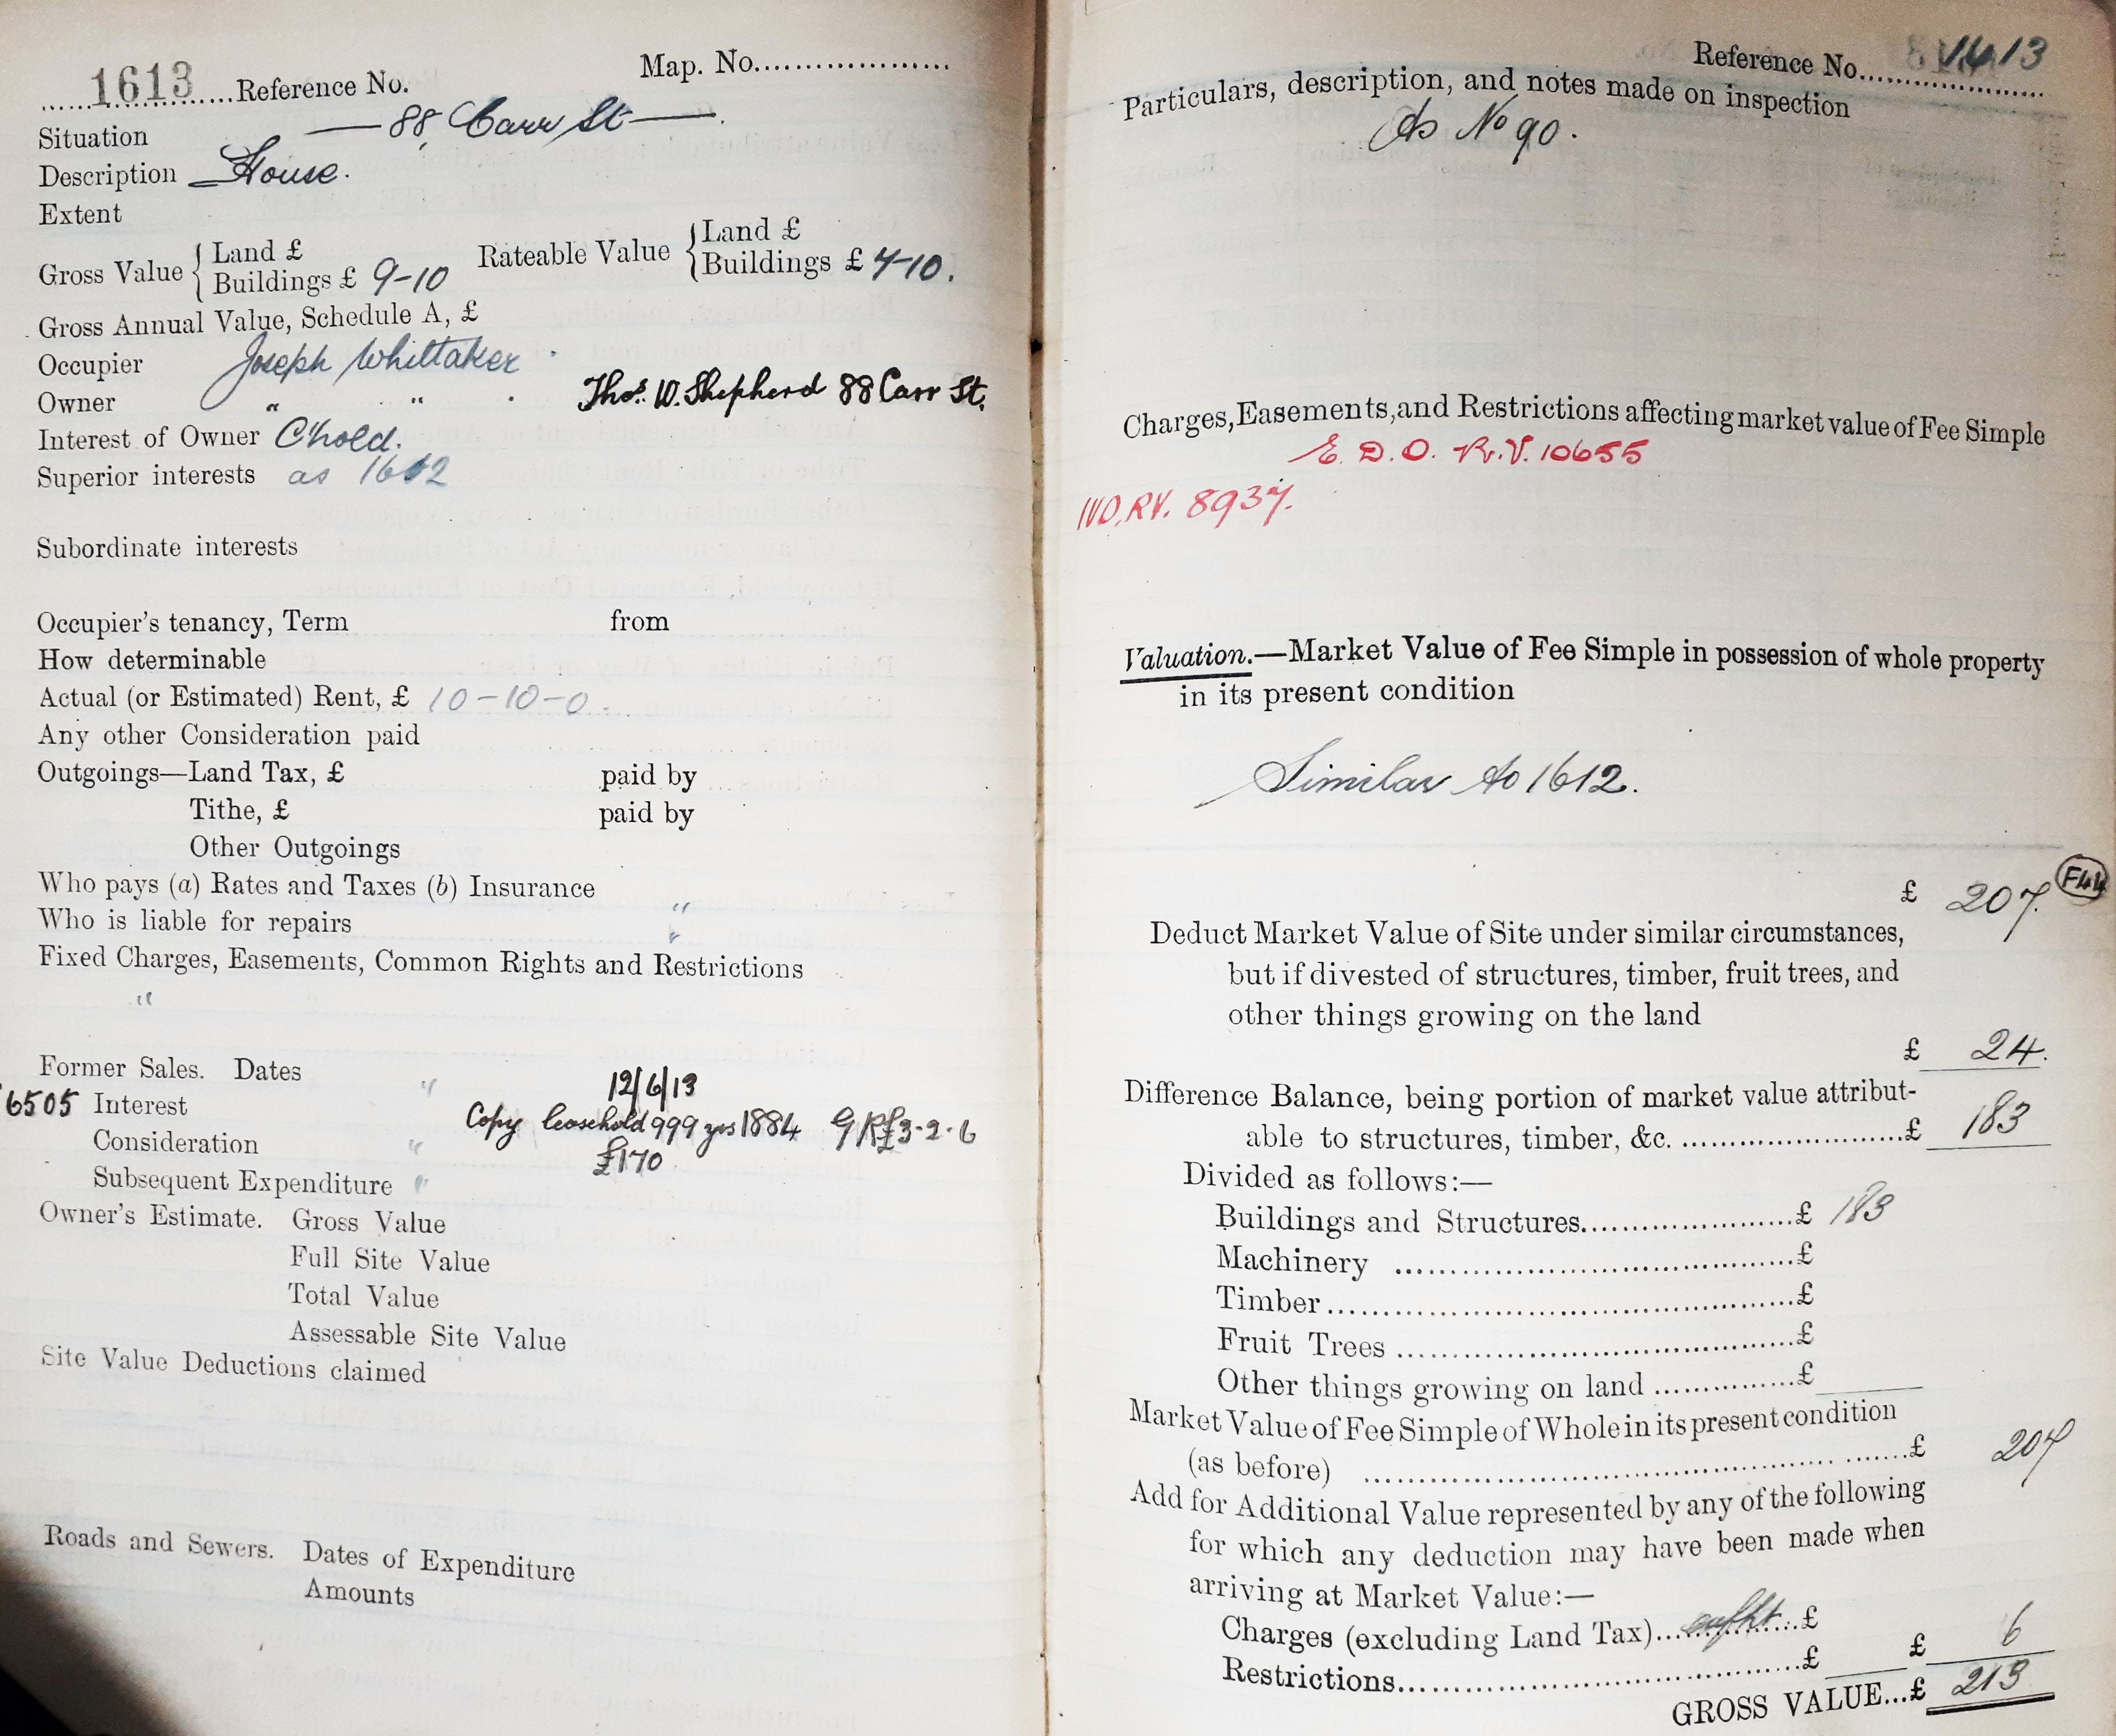 1613 Reference No. Map. No.
Situation — 88, Carr St —
Description House.
Extent
Gross Value { Land £
Buildings £ 9-10
Rateable Value { Land £
Buildings £ 7-10.
Gross Annual Value, Schedule A, £
Occupier Joseph Whittaker
Owner " " Thos. W. Shepherd 88 Carr St.
Interest of Owner C'hold.
Superior interests as 1612
Subordinate interests
Occupier's tenancy, Term from
How determinable
Actual (or Estimated) Rent, £ 10-10-0.
Any other Consideration paid
Outgoings—Land Tax, £ paid by
Tithe, £ paid by
Other Outgoings
Who pays (a) Rates and Taxes (b) Insurance "
Who is liable for repairs "
Fixed Charges, Easements, Common Rights and Restrictions
"
Former Sales. Dates " 12/6/13
6505 Interest Copy leasehold 999 yrs 1884 GR £3-2-6
Consideration " £170
Subsequent Expenditure "
Owner's Estimate. Gross Value
Full Site Value
Total Value
Assessable Site Value
Site Value Deductions claimed
Roads and Sewers. Dates of Expenditure
Amounts
Reference No. 1613
Particulars, description, and notes made on inspection
As No 90.
Charges, Easements, and Restrictions affecting market value of Fee Simple
E. D. O. R.V. 10655
IVD, RV. 8937.
Valuation.—Market Value of Fee Simple in possession of whole property
in its present condition
Similar to 1612.
£ 207. F44
Deduct Market Value of Site under similar circumstances,
but if divested of structures, timber, fruit trees, and
other things growing on the land
£ 24.
Difference Balance, being portion of market value attribut-
able to structures, timber, &c. £ 183
Divided as follows:—
Buildings and Structures £ 183
Machinery £
Timber £
Fruit Trees £
Other things growing on land £
Market Value of Fee Simple of Whole in its present condition
(as before) £ 207
Add for Additional Value represented by any of the following
for which any deduction may have been made when
arriving at Market Value:—
Charges (excluding Land Tax) £
Restrictions £ £ 6
GROSS VALUE...£ 213